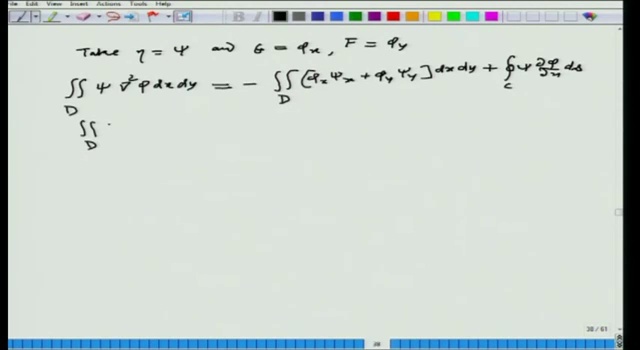 File Edit View Insert Actions Tools Help
Take η = ψ and G = φₓ, F = φ_y
∬_D ψ ∇²φ dx dy = - ∬_D [φₓ ψₓ + φ_y ψ_y] dx dy + ∮_C ψ ∂φ/∂n ds
∬_D
38 / 61
38